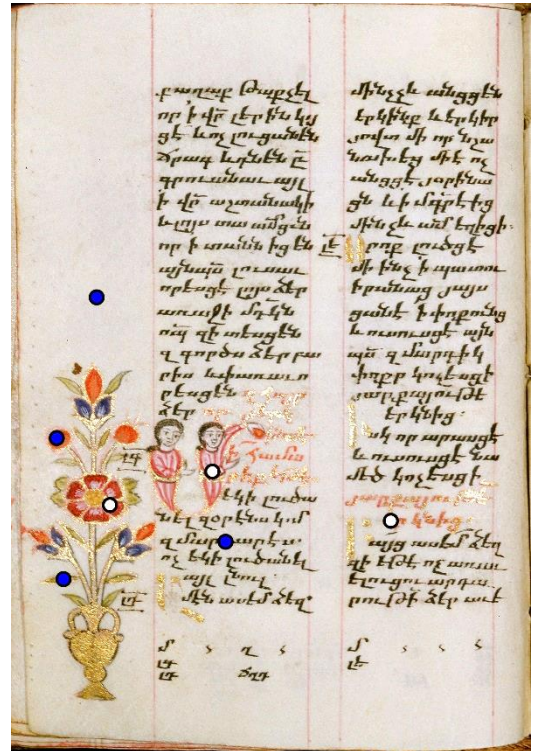 քաղաք թաքչել
որ ի վր լերին կայ
ցէ և ոչ լուցանեն
ճրագ և դնեն ընդ
գրուանաւ այլ
ի վր աշտանակի
և լոյս տա ամեցն
որ ի տանն իցեն
այնպս լուսաւ
որեսցէ լոյս ձեր
առաջի մդկն
որպ զի տեսցեն
զգործս ձեր բա
րիս և փառաւո
րեսցեն
ձեր
համա
եկի լուծա
նել զօրէնս կմ
զմարգարէս
ոչ եկի լուծանել
այլ լնուլ
մէն ասեմ ձեզ
մինչև անցցեն
երկինք և երկիր
յովտ մի որ նշա
նախեց մի է ոչ
անցցէ յօրինա
ցն և ի մգրէից
մինչև ամ եղիցի։
Որ ոք լուծցէ
մի ինչ ի պատու
իրանաց յայս
ցանէ ի փոքունց
և ուսուսցէ այն
պս զմարդիկ
փոքր կոչեսցի
յարքայութե
երկնից։
Իսկ որ արասցէ
և ուսուսցէ նա
մեծ կոչեսցի
յարքայութե
երկնից։
Բայց ասեմ ձեզ
զի եթէ ոչ առաւ
ելուցու արդա
րութի ձեր աւե